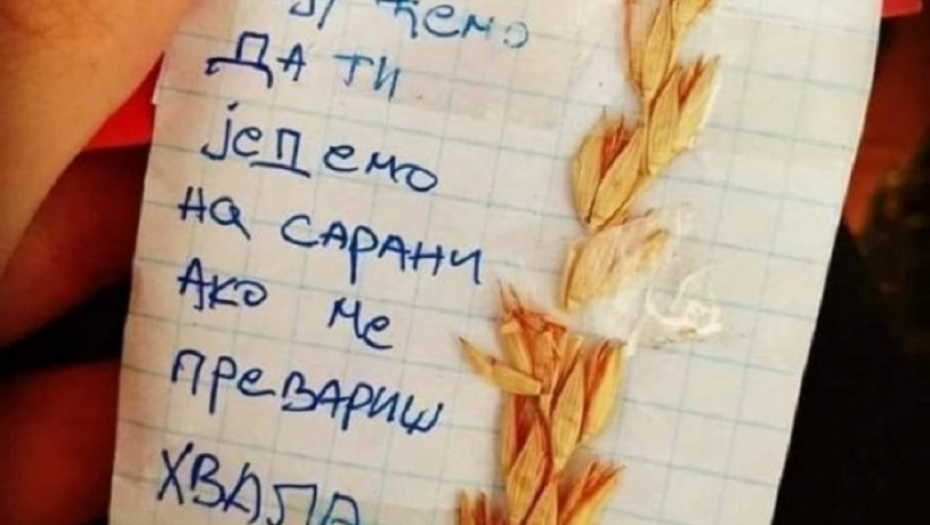 ДА ТИ
једемо
на сарани
Ако ме
превариш
ХВАЛА